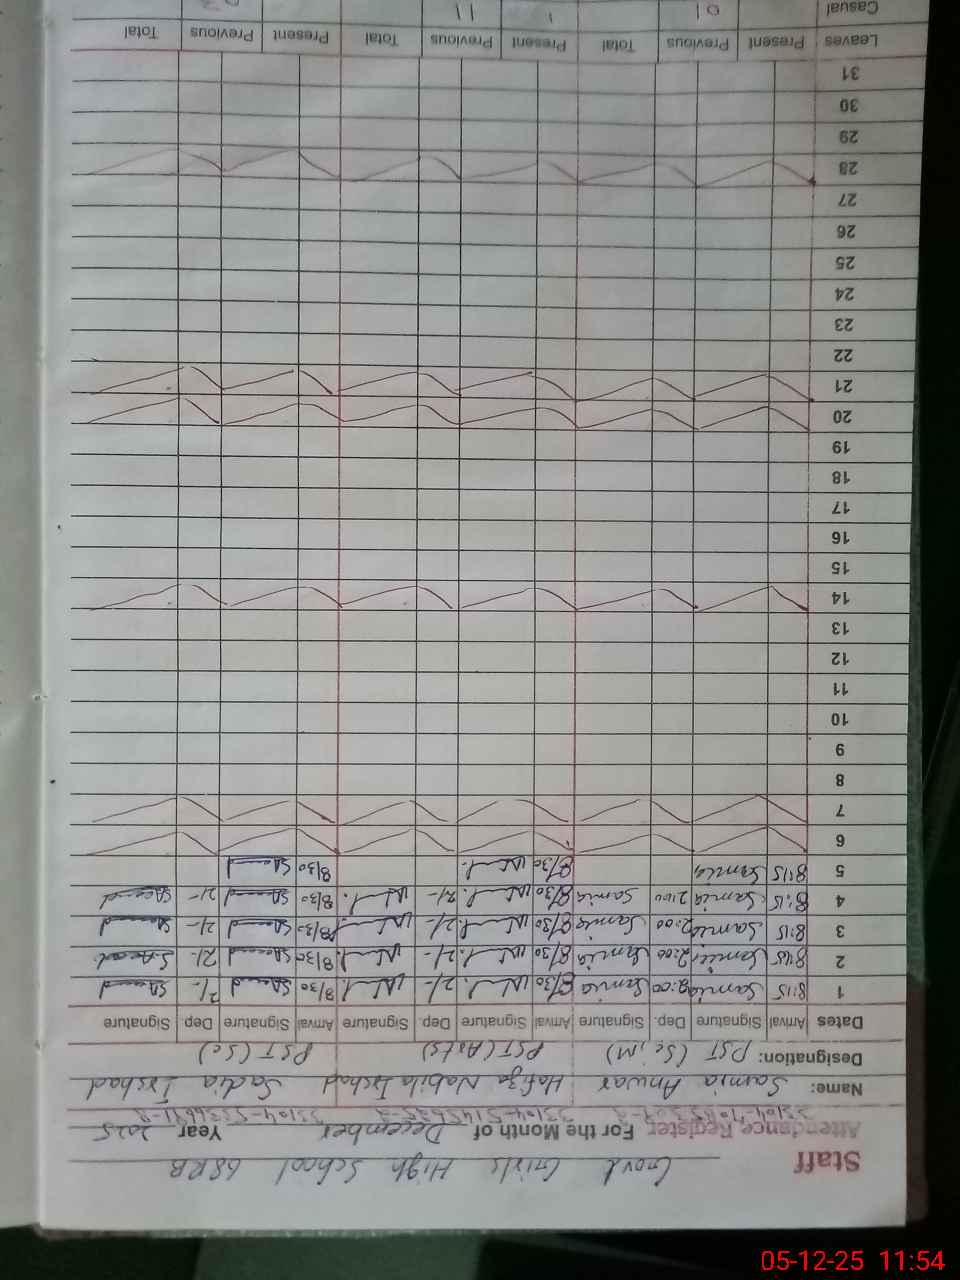 Staff Govt Girls High School 68RB
Attendance Register, For the Month of December Year 2025
Name: Samia Anwar Hafiza Nabila Irshad Sadia Irshad
Designation: PST (Sc, M) PST (Arts) PST (Sc)
Dates Arrival Signature Dep. Signature Arrival Signature Dep. Signature Arrival Signature Dep. Signature
1 8:15 Samia 2:00 Samia 8/30 2/- 8/30 2/-
2 8:15 Samia 2:00 Samia 8/30 2/- 8/30 2/-
3 8:15 Samia 2:00 Samia 8/30 2/- 8/30 2/-
4 8:15 Samia 2:00 Samia 8/30 2/- 8/30 2/-
5 8:15 Samia 8/30 8/30
6
7
8
9
10
11
12
13
14
15
16
17
18
19
20
21
22
23
24
25
26
27
28
29
30
31
Leaves Present Previous Total Present Previous Total Present Previous Total
Casual 01 1 11
05-12-25 11:54